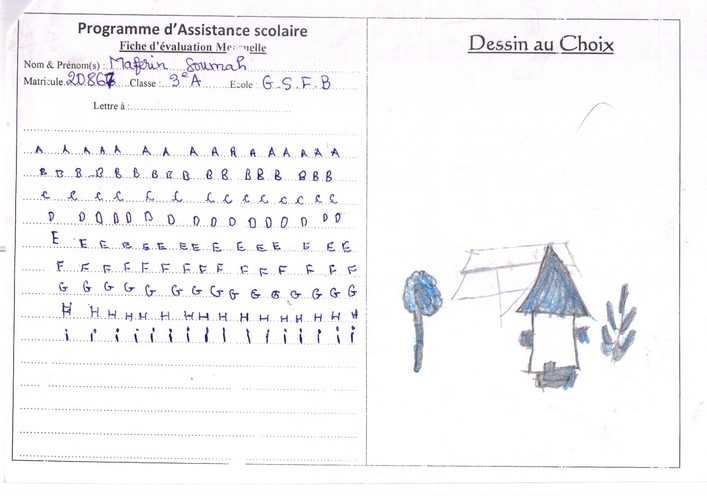 Programme d'Assistance scolaire
Fiche d'évaluation Mensuelle
Nom & Prénom(s) : Maferin Soumah
Matricule 20867 Classe : 3e A Ecole : G.S.F.B
Lettre à :
A A A A A A A A A A A A A A A A
B B B B B B B B B B B B B B B B
C C C C C C C C C C C C C C
D D D D D D D D D D D D D D D
E E E E E E E E E E E E E E E
F F F F F F F F F F F F F F F
G G G G G G G G G G G G G G G
H H H H H H H H H H H H H H H
i i i i i i i i i i i i i i i
Dessin au Choix